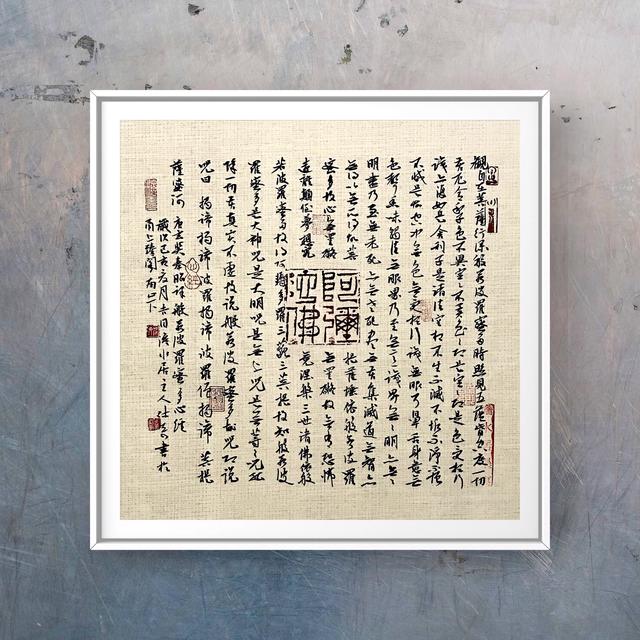 觀自在菩薩行深般若波羅蜜多時照見五蘊皆空度一切
苦厄舍利子色不異空空不異色色即是空空即是色受想行
識亦復如是舍利子是諸法空相不生不滅不垢不淨不增
不減是故空中無色無受想行識無眼耳鼻舌身意無
色聲香味觸法無眼界乃至無意識界無無明亦無無
明盡乃至無老死亦無老死盡無苦集滅道無智亦
無得以無所得故菩提薩埵依般若波羅
蜜多故心無罣礙無罣礙故無有恐怖
遠離顛倒夢想究竟涅槃三世諸佛依般
若波羅蜜多故得阿耨多羅三藐三菩提故知般若波
羅蜜多是大神咒是大明咒是無上咒是無等等咒能
除一切苦真實不虛故說般若波羅蜜多咒即說
咒曰揭諦揭諦波羅揭諦波羅僧揭諦菩提
薩婆訶 唐玄奘奉昭譯般若波羅蜜多心經
歲次己亥夏月吉日小居主人書於
甬上
阿彌陀佛